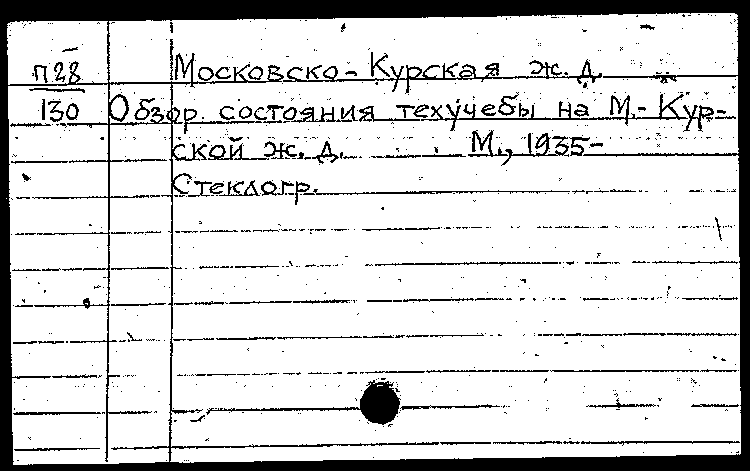 П28 Московско-Курская ж.д.
130 Обзор состояния техучебы на М.-Кур-
ской ж.д. М., 1935-
Стеклогр.